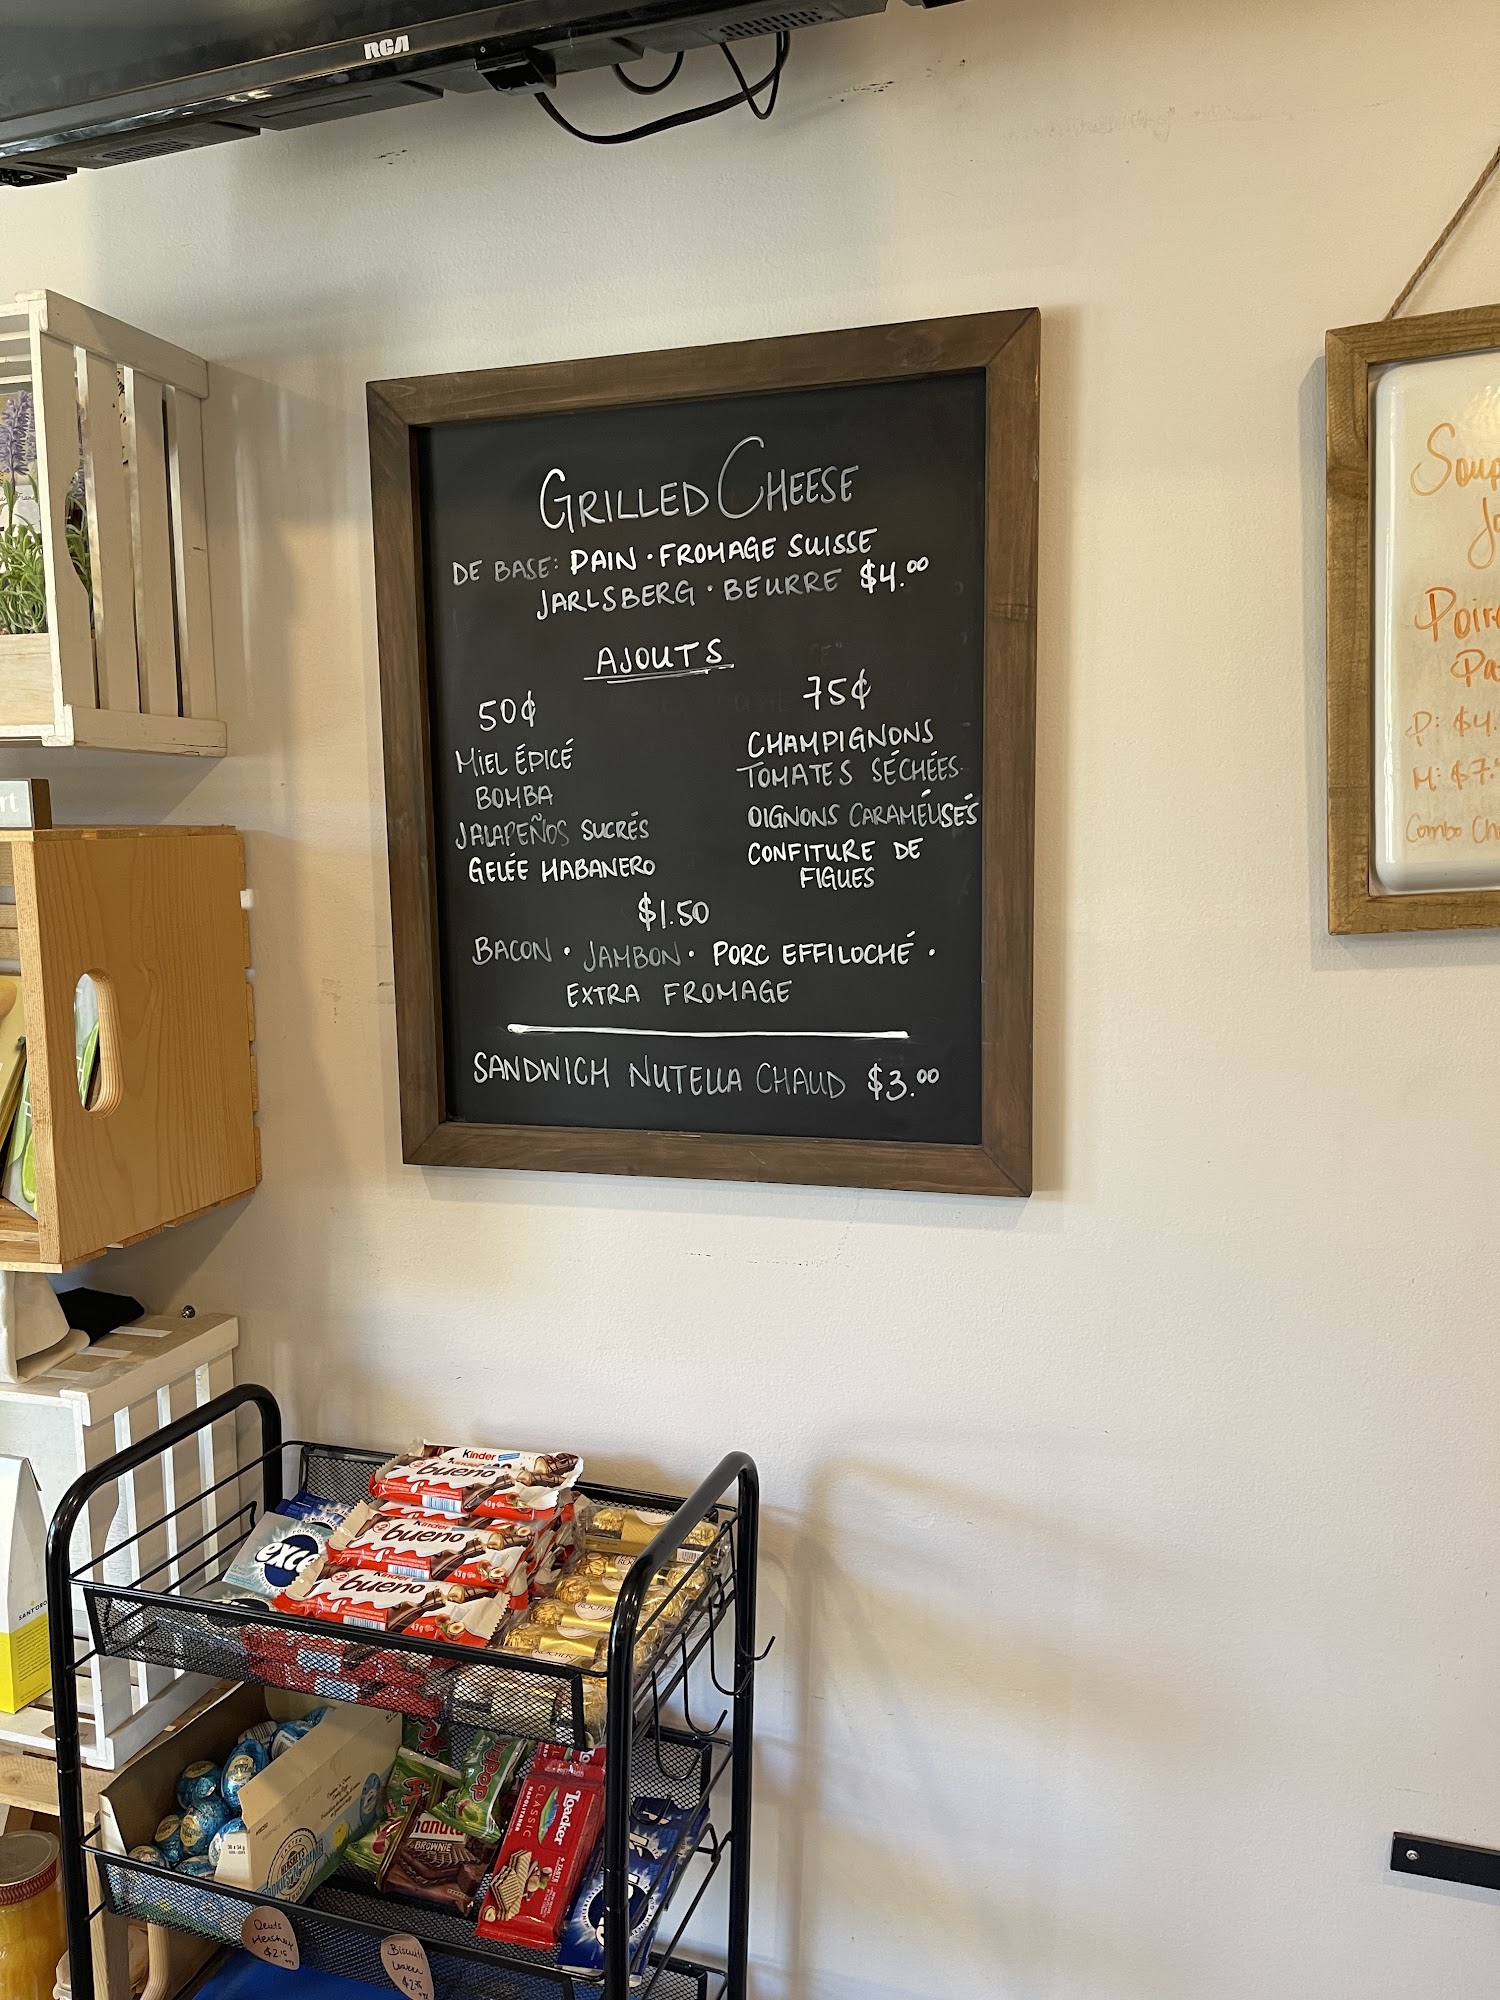 RCA
GRILLED CHEESE
DE BASE: PAIN · FROMAGE SUISSE
JARLSBERG · BEURRE $4.00
AJOUTS
50¢
MIEL ÉPICÉ
BOMBA
JALAPEÑOS SUCRÉS
GELÉE HABANERO
75¢
CHAMPIGNONS
TOMATES SÉCHÉES
OIGNONS CARAMÉLISÉS
CONFITURE DE
FIGUES
$1.50
BACON · JAMBON · PORC EFFILOCHÉ ·
EXTRA FROMAGE
SANDWICH NUTELLA CHAUD $3.00
Soup
P: $4.
M: $7.
Combo Ch
rt
Kinder
bueno
Kinder
bueno
Kinder
bueno
43g
exce
SANT'ORO
BROWNIE
Loacker
CLASSIC
NAPOLITANER
Oeufs
Hershey
Biscuits